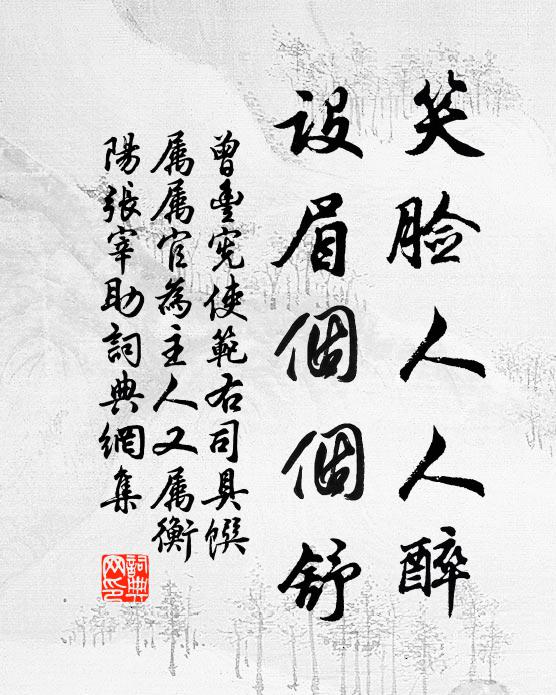 笑脸人人醉
设眉個個舒
曾豊宪使範右司具饌
属属官為主人又属衡
陽張宰助詞典網集
詞典
网印